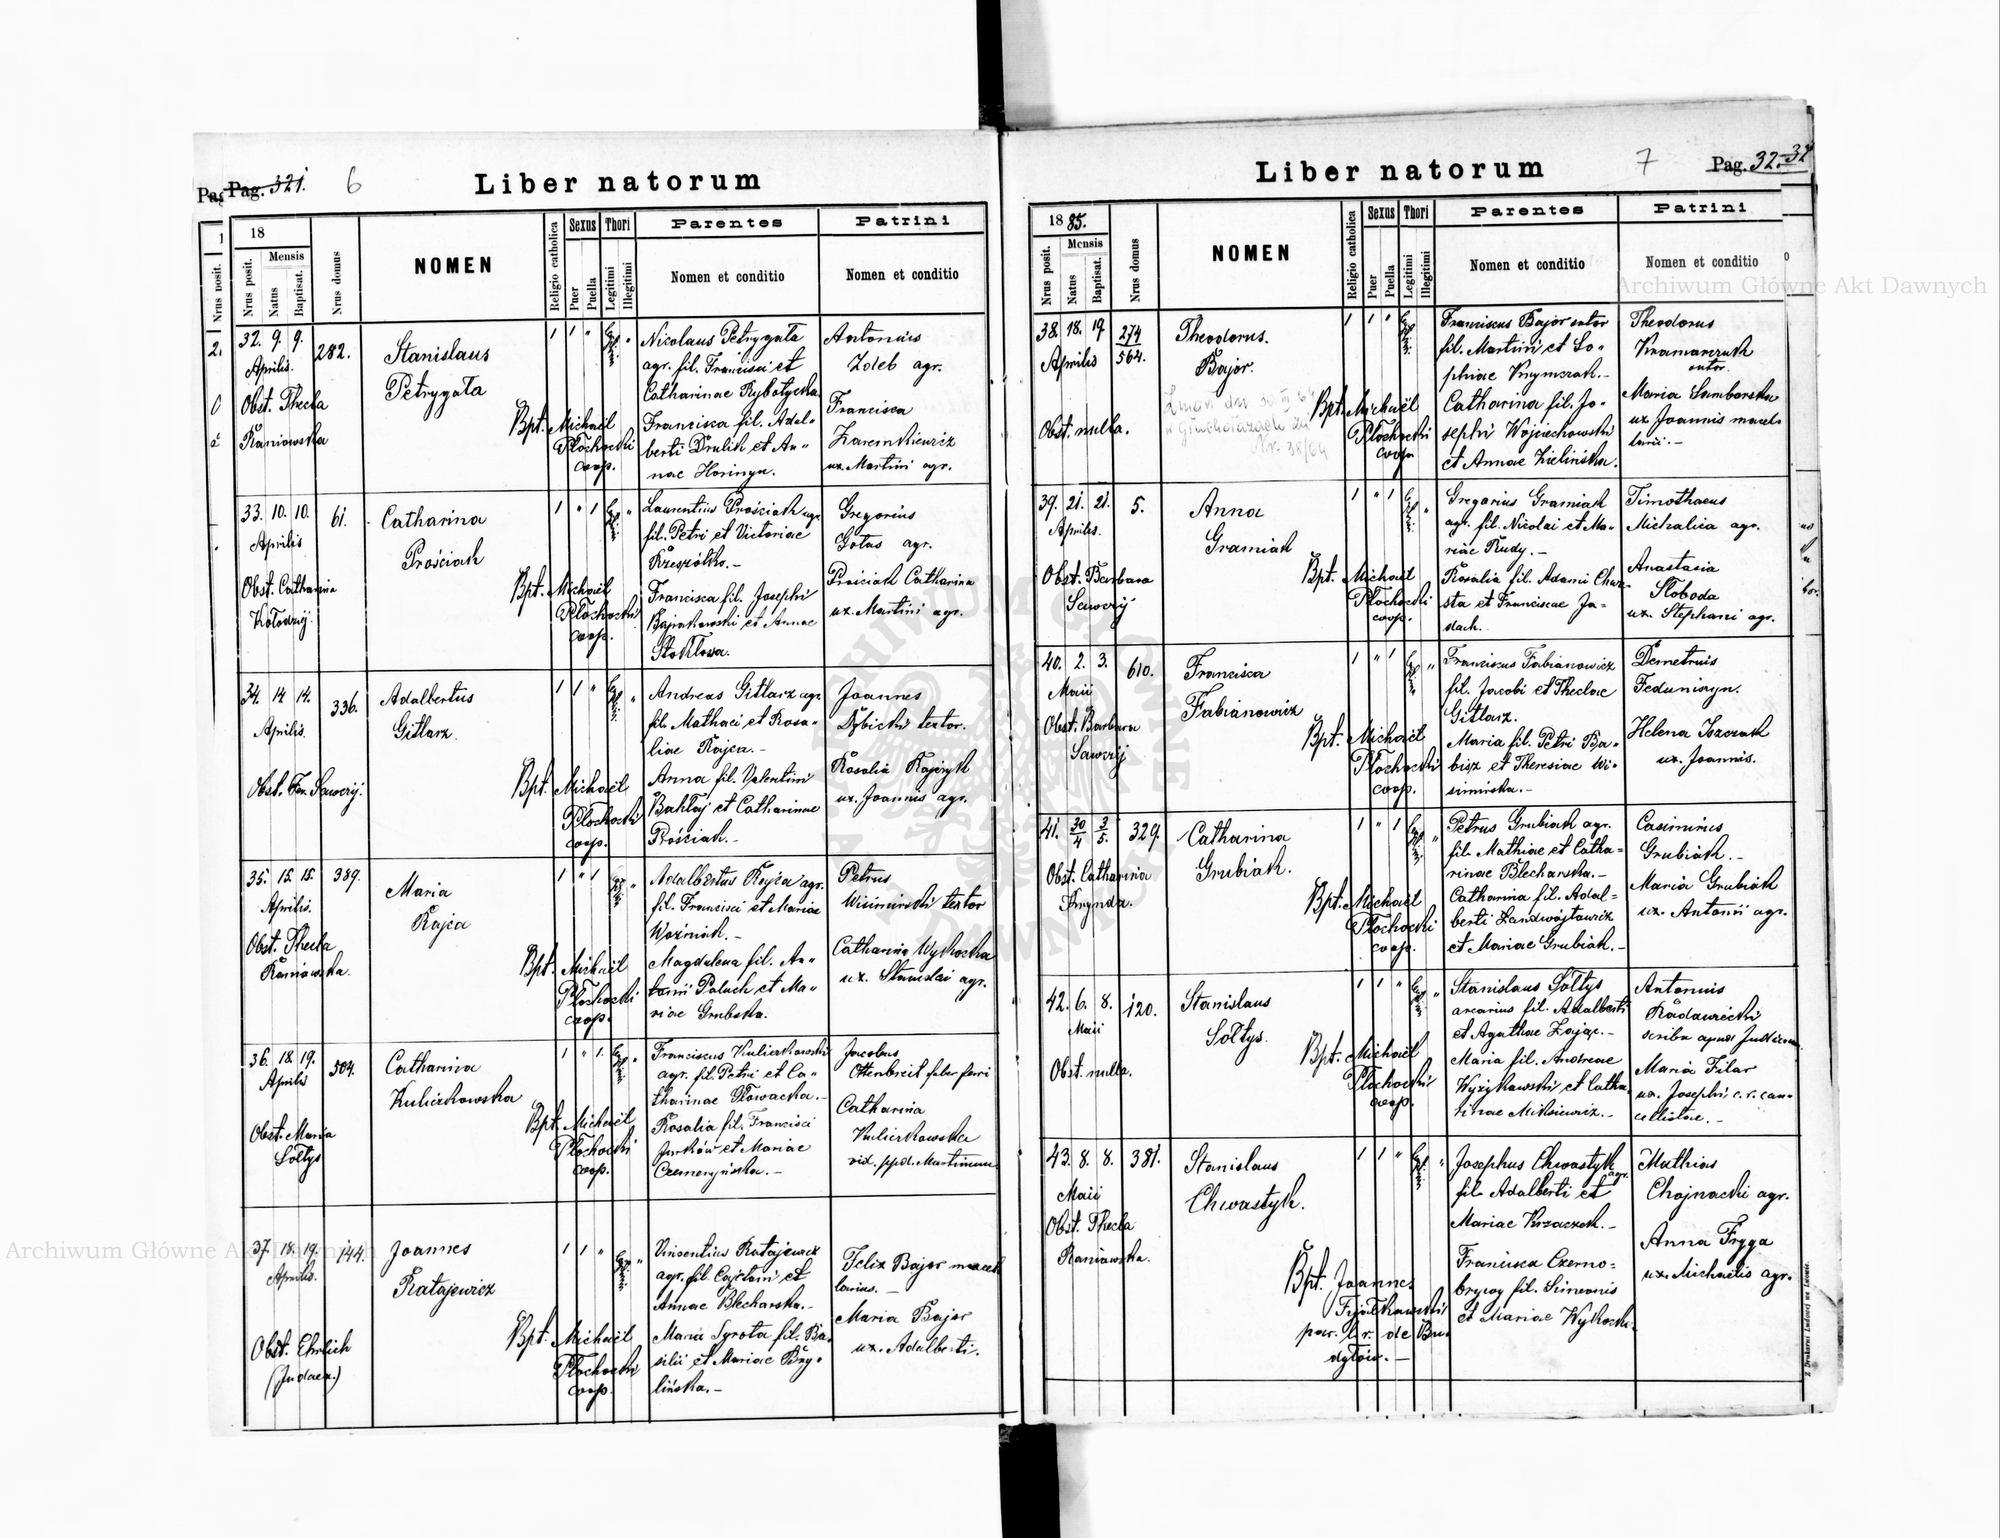 Pag. 321.
6
Liber natorum
18
Nrus posit.
Mensis
Natus
Baptisat.
Nrus domus
NOMEN
Religio catholica
Sexus
Puer
Puella
Thori
Legitimi
Illegitimi
Parentes
Nomen et conditio
Patrini
Nomen et conditio
32. 9. 9.
Aprilis.
282.
Obst. Thecla
Raniowska
Stanislaus
Petrygała
Bpt. Michaël
Płochocki
coop.
Nicolaus Petrygała
agr. fil. Francisci et
Catharinae Rybotycka
Francisca fil. Adal-
berti Drulik et An-
nae Horinga.
Antonius
Zdeb agr.
Francisca
ux. Martini agr.
33. 10. 10.
Aprilis
61.
Obst. Catharina
Kołodzij.
Catharina
Prościak
Bpt. Michaël
Płochocki
coop.
Laurentius Prościak agr.
fil. Petri et Victoriae
Francisca fil. Josephi
et Annae
Stokłosa.
Gregorius
Gołas agr.
Prościak Catharina
ux. Martini agr.
34. 14 14.
Aprilis.
336.
Obst. Fr. Sawczij.
Adalbertus
Gitlarz.
Bpt. Michaël
Płochocki
coop.
Andreas Gitlarz agr.
fil. Mathaei et Rosa-
liae Rajca.-
Anna fil. Valentini
Bakłaj et Catharinae
Prościak.-
Joannes
Dębicki textor.
Rosalia Rajczyk
ux. Joannis agr.
35. 15. 15.
Aprilis.
389.
Obst. Thecla
Raniowska.
Maria
Rajca
Bpt. Michaël
Płochocki
coop.
Adalbertus Rajca agr.
fil. Francisci et Mariae
Woźniak.-
Magdalena fil. An-
tonii Paluch et Ma-
riae Grubska.
Petrus
Wisimirski textor
Catharina Wykoska
ux. Stanislai agr.
36. 18. 19.
Aprilis
504.
Obst. Maria
Sołtys
Catharina
Kulczkowska
Bpt. Michaël
Płochocki
coop.
Franciscus
agr. fil. Petri et Ca-
tharinae Głowacka.-
Rosalia fil. Francisci
Jurków et Mariae
Czemeryńska.-
Jacobus
Ottenbreit faber ferri
Catharina
37. 18. 19.
Aprilis.
144.
Obst. Ehrlich
(Judaea.)
Joannes
Ratajewicz
Bpt. Michaël
Płochocki
coop.
Vincentius Ratajewicz
agr. fil. Cajetani et
Annae Blecharska.-
Maria Syrota fil. Ba-
silii et Mariae Bry-
lińska.-
Felix Bajor macel-
larius.-
Maria Bajor
ux. Adalberti.
Liber natorum
7
Pag. 32.
1885.
Nrus posit.
Mensis
Natus
Baptisat.
Nrus domus
NOMEN
Religio catholica
Sexus
Puer
Puella
Thori
Legitimi
Illegitimi
Parentes
Nomen et conditio
Patrini
Nomen et conditio
38. 18. 19.
Aprilis
274
564.
Obst. nulla.
Theodorus.
Bajor.
Nr. 38/64
Bpt. Michaël
Płochocki
coop.
Franciscus Bajor sutor
fil. Martini et So-
phiae Krymczak.-
Catharina fil. Jo-
sephi Wojciechowski
et Annae Zielińska.
Theodorus
Kramarczuk
sutor
Maria Samborska
ux. Joannis macel-
larii.-
39. 21. 21.
Aprilis.
5.
Obst. Barbara
Sawczij
Anna
Gramiak
Bpt. Michaël
Płochocki
coop.
Gregorius Gramiak
agr. fil. Nicolai et Ma-
riae Rudy.-
Rosalia fil. Adami Chwa-
sta et Franciscae Ja-
dach.
Timothaeus
Michalica agr.
Anastasia
Słoboda
ux. Stephani agr.
40. 2. 3.
Maii
610.
Obst. Barbara
Sawczij
Francisca
Fabianowicz
Bpt. Michaël
Płochocki
coop.
Franciscus Fabianowicz
fil. Jacobi et Theclae
Gitlarz.
Maria fil. Petri Ba-
bisz et Theresiae Wi-
simirska.-
Demetrius
Feduniszyn.
Helena
ux. Joannis.
41. 30/4 3/5.
329.
Obst. Catharina
Smynda.
Catharina
Grubiak.
Bpt. Michaël
Płochocki
coop.
Petrus Grubiak agr.
fil. Mathiae et Catha-
rinae Blecharska.-
Catharina fil. Adal-
berti Landwójtowicz
et Mariae Grubiak.-
Casimirus
Grubiak.-
Maria Grubiak
ux. Antonii agr.
42. 6. 8.
Maii
120.
Obst. nulla.
Stanislaus
Sołtys.
Bpt. Michaël
Płochocki
coop.
Stanislaus Sołtys
arcarius fil. Adalberti
et Agathae Zając.-
Maria fil. Andreae
Wyżykowski et Catha-
rinae Miksiewicz.-
Antonius
Radawiecki
scriba apud Judicium.
Maria Filar
ux. Josephi c. r. can-
cellistae.-
43. 8. 8.
Maii
381.
Obst. Thecla
Raniowska.
Stanislaus
Chwastyk.
Bpt. Joannes
Fijałkowski
par. l. r. de Bu-
dyłów.-
Josephus Chwastyk
agr.
fil. Adalberti et
Mariae Krzaczek.-
Francisca Czerno-
brywy fil. Simeonis
et Mariae
Mathias
Chojnacki agr.
Anna Fryga
ux. Michaelis agr.
Z Drukarni Ludowej we Lwowie.
Archiwum Główne Akt Dawnych
Archiwum Główne Akt Dawnych
ARCHIWUM GŁÓWNE AKT DAWNYCH